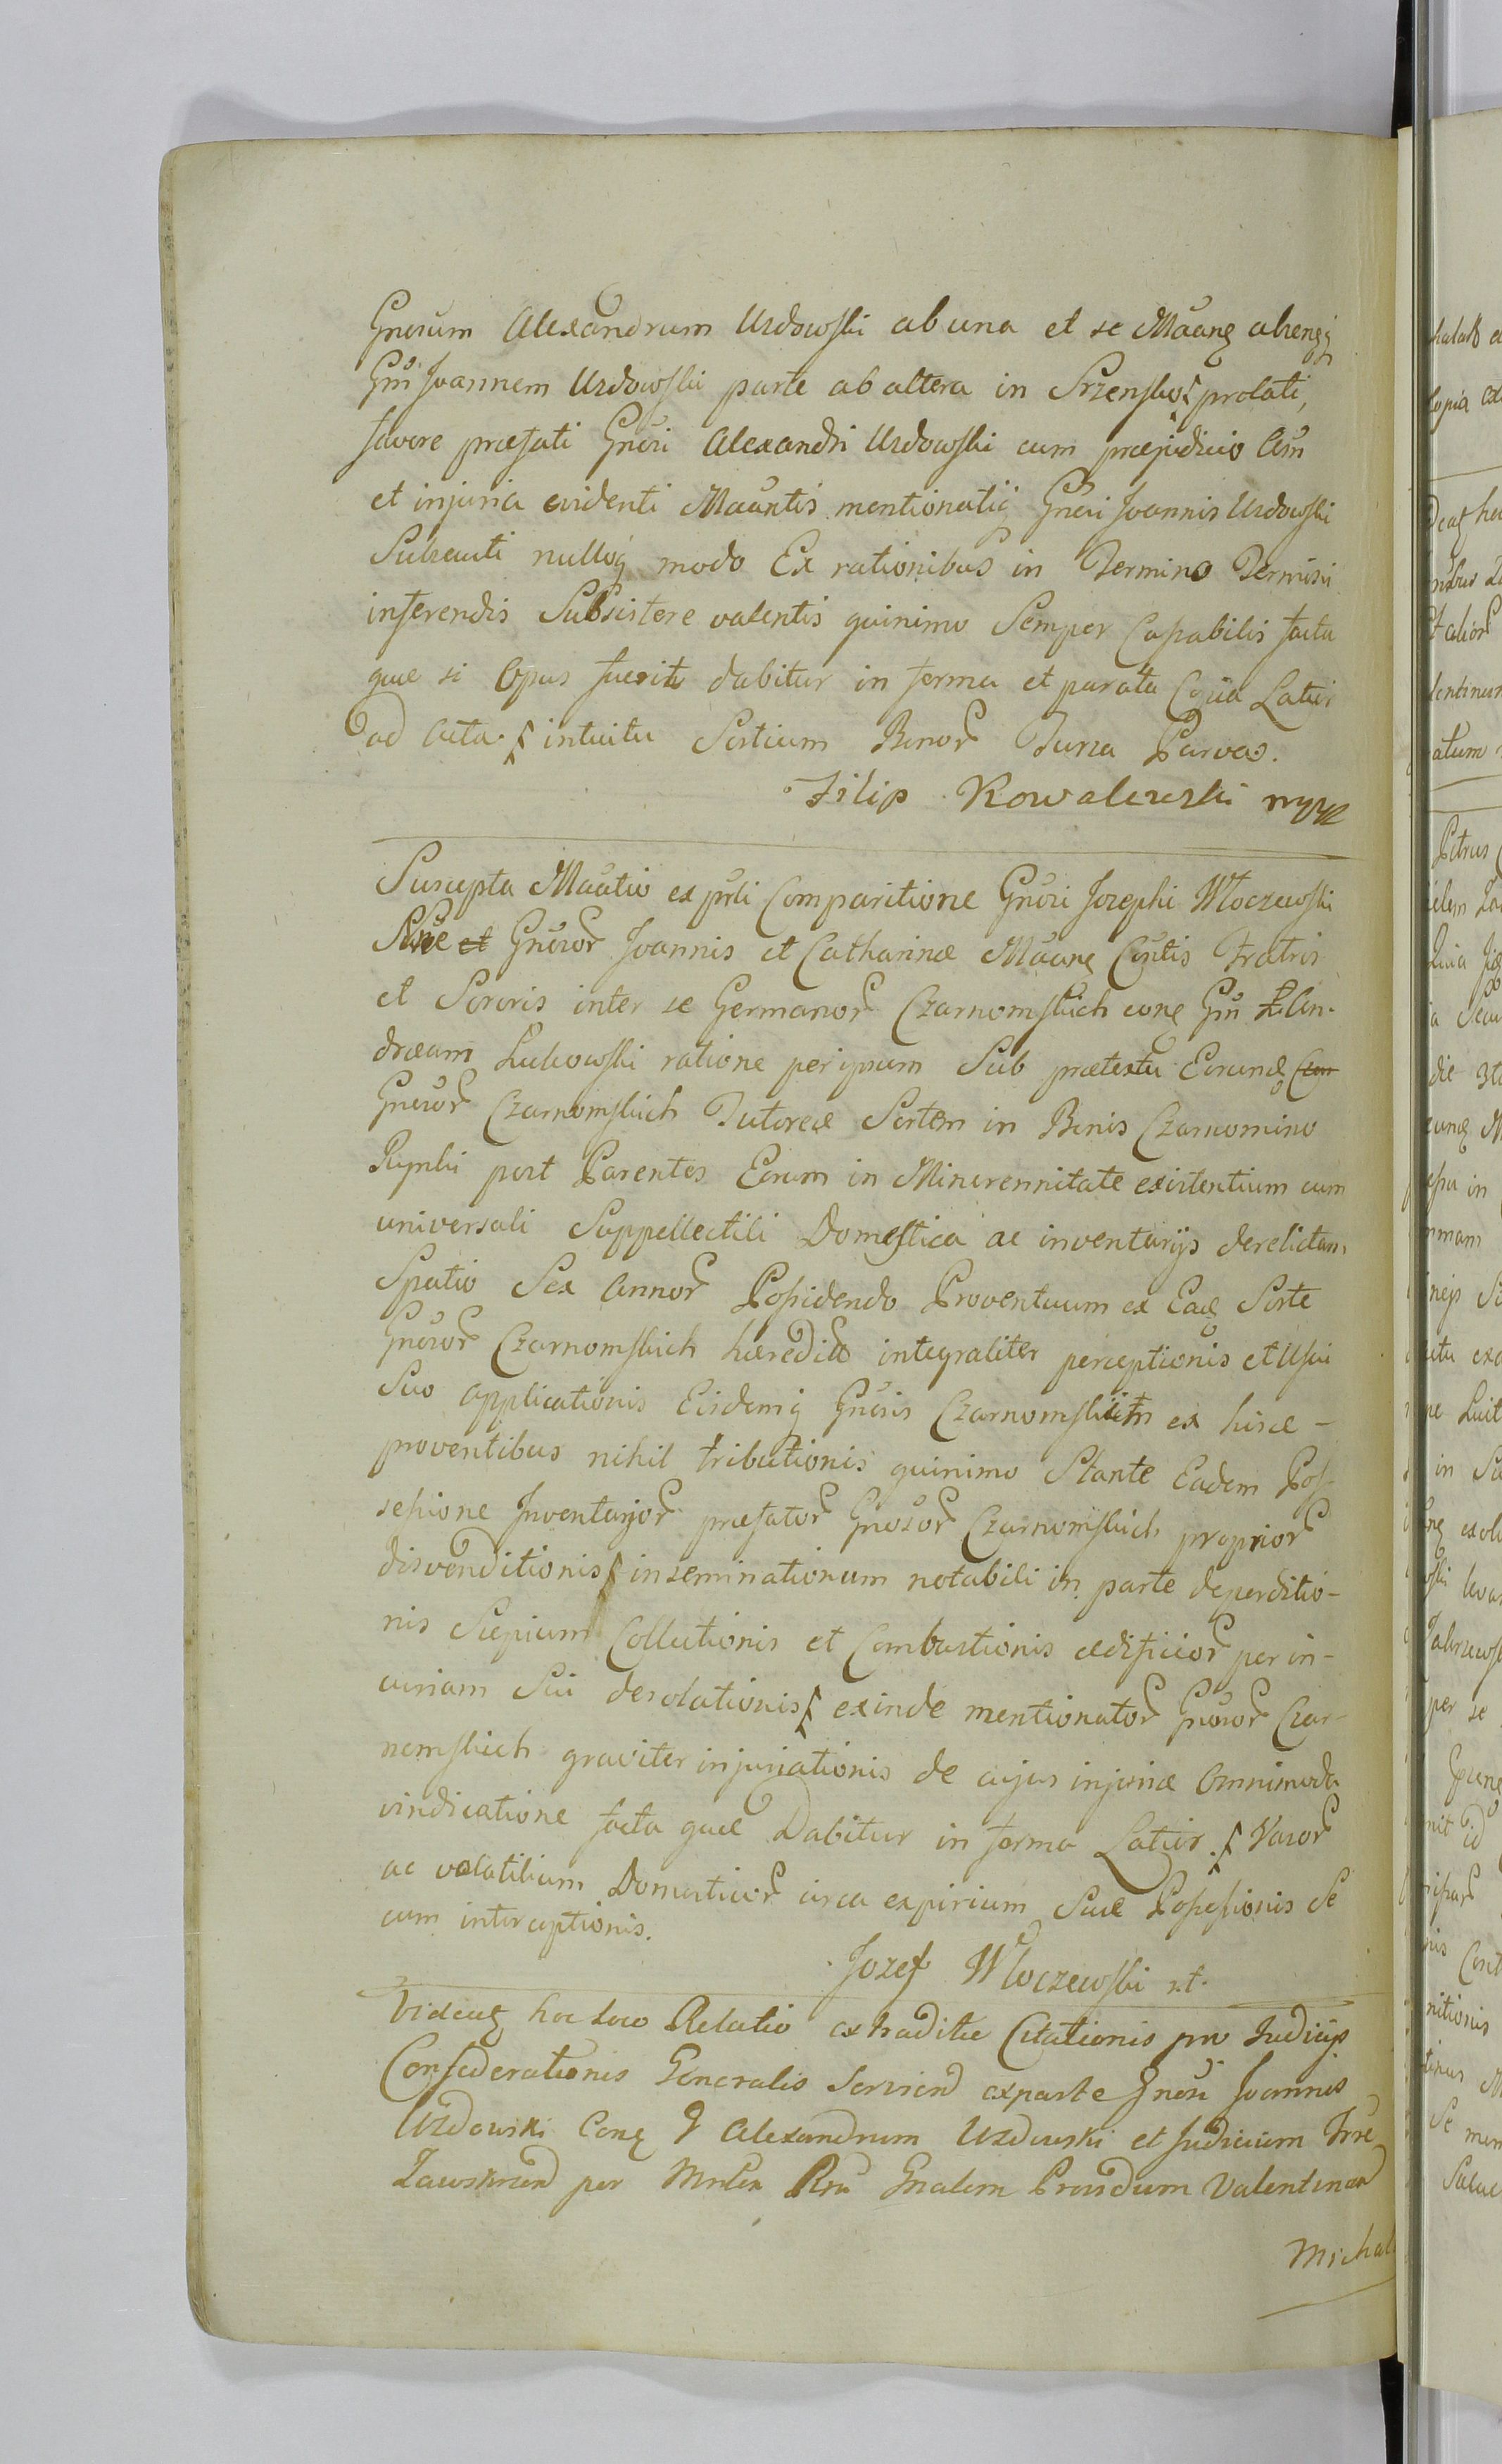 Gnerum Alexandrum Uzdowski ab una et se
Gnu Joannem Uzdowski parte ab altera in prolati,
favore præfati Gneri Alexandri Uzdowski cum præjudicio
et injuria evidenti Maantis mentionatiq Gneri Joannis Uzdowski
nulloq modo Ex rationibus in Termino
inferendis Subsistere valentis quinimo Semper Capabilis facta
quæ si Opus fuerit dabitur in forma et parata Copia Latior
ad Acta intuitu Sortium Bonor Turza Parvas.
Filip Kowalewski mpp
Suscepta Maatio ex prli Comparitione Gneri Jozephi Wloczewski
Gneror Joannis et Catharinæ Fratris
et Sororis inter se Germanor Czarnomskich conq Gnu An-
dream Lukowski ratione per ipsum Sub prætextu Eorund
Gneror Czarnomskich Tutoreæ Sortem in Bonis Czarnomino
Rynki post Parentes Eorum in Minorennitate existentium cum
universali Suppellectili Domestica ac inventarijs derelictam
Spatio Sex Annor Possidendo Proventuum ex Ead Sorte
Gneror Czarnomskich hæredit integraliter perceptionis et Usui
Suo applicationis Eisdemq Gneris Czarnomskich ex hisce -
proventibus nihil tributionis quinimo Stante Eadem Pos-
sessione Inventarjor præfator Gneror Czarnomskich proprior
disvenditionis inseminationum notabili in parte deperditio-
nis Sepium Collutionis et Combustionis ædificior per in-
curiam Sui desolationis exinde mentionator Gneror Czar-
nomskich graviter injuriationis de cujus injuriæ Omnimoda
vindicatione facta quæ Dabitur in forma Latior. Vasor
ac volatilium Domesticor circa expirium Suæ Possessionis Se
cum interceptionis.
Jozef Wloczewski
Videatq hoc loco Relatio extraditæ Citationis pro Judicijs
Confæderationis Generalis Serviend ex parte Gneri Joannis
Uzdowski Conq G Alexandrum Uzdowski et Judicium Trre
Zawskrzen per Gnalem Providum Valentinum
Michal